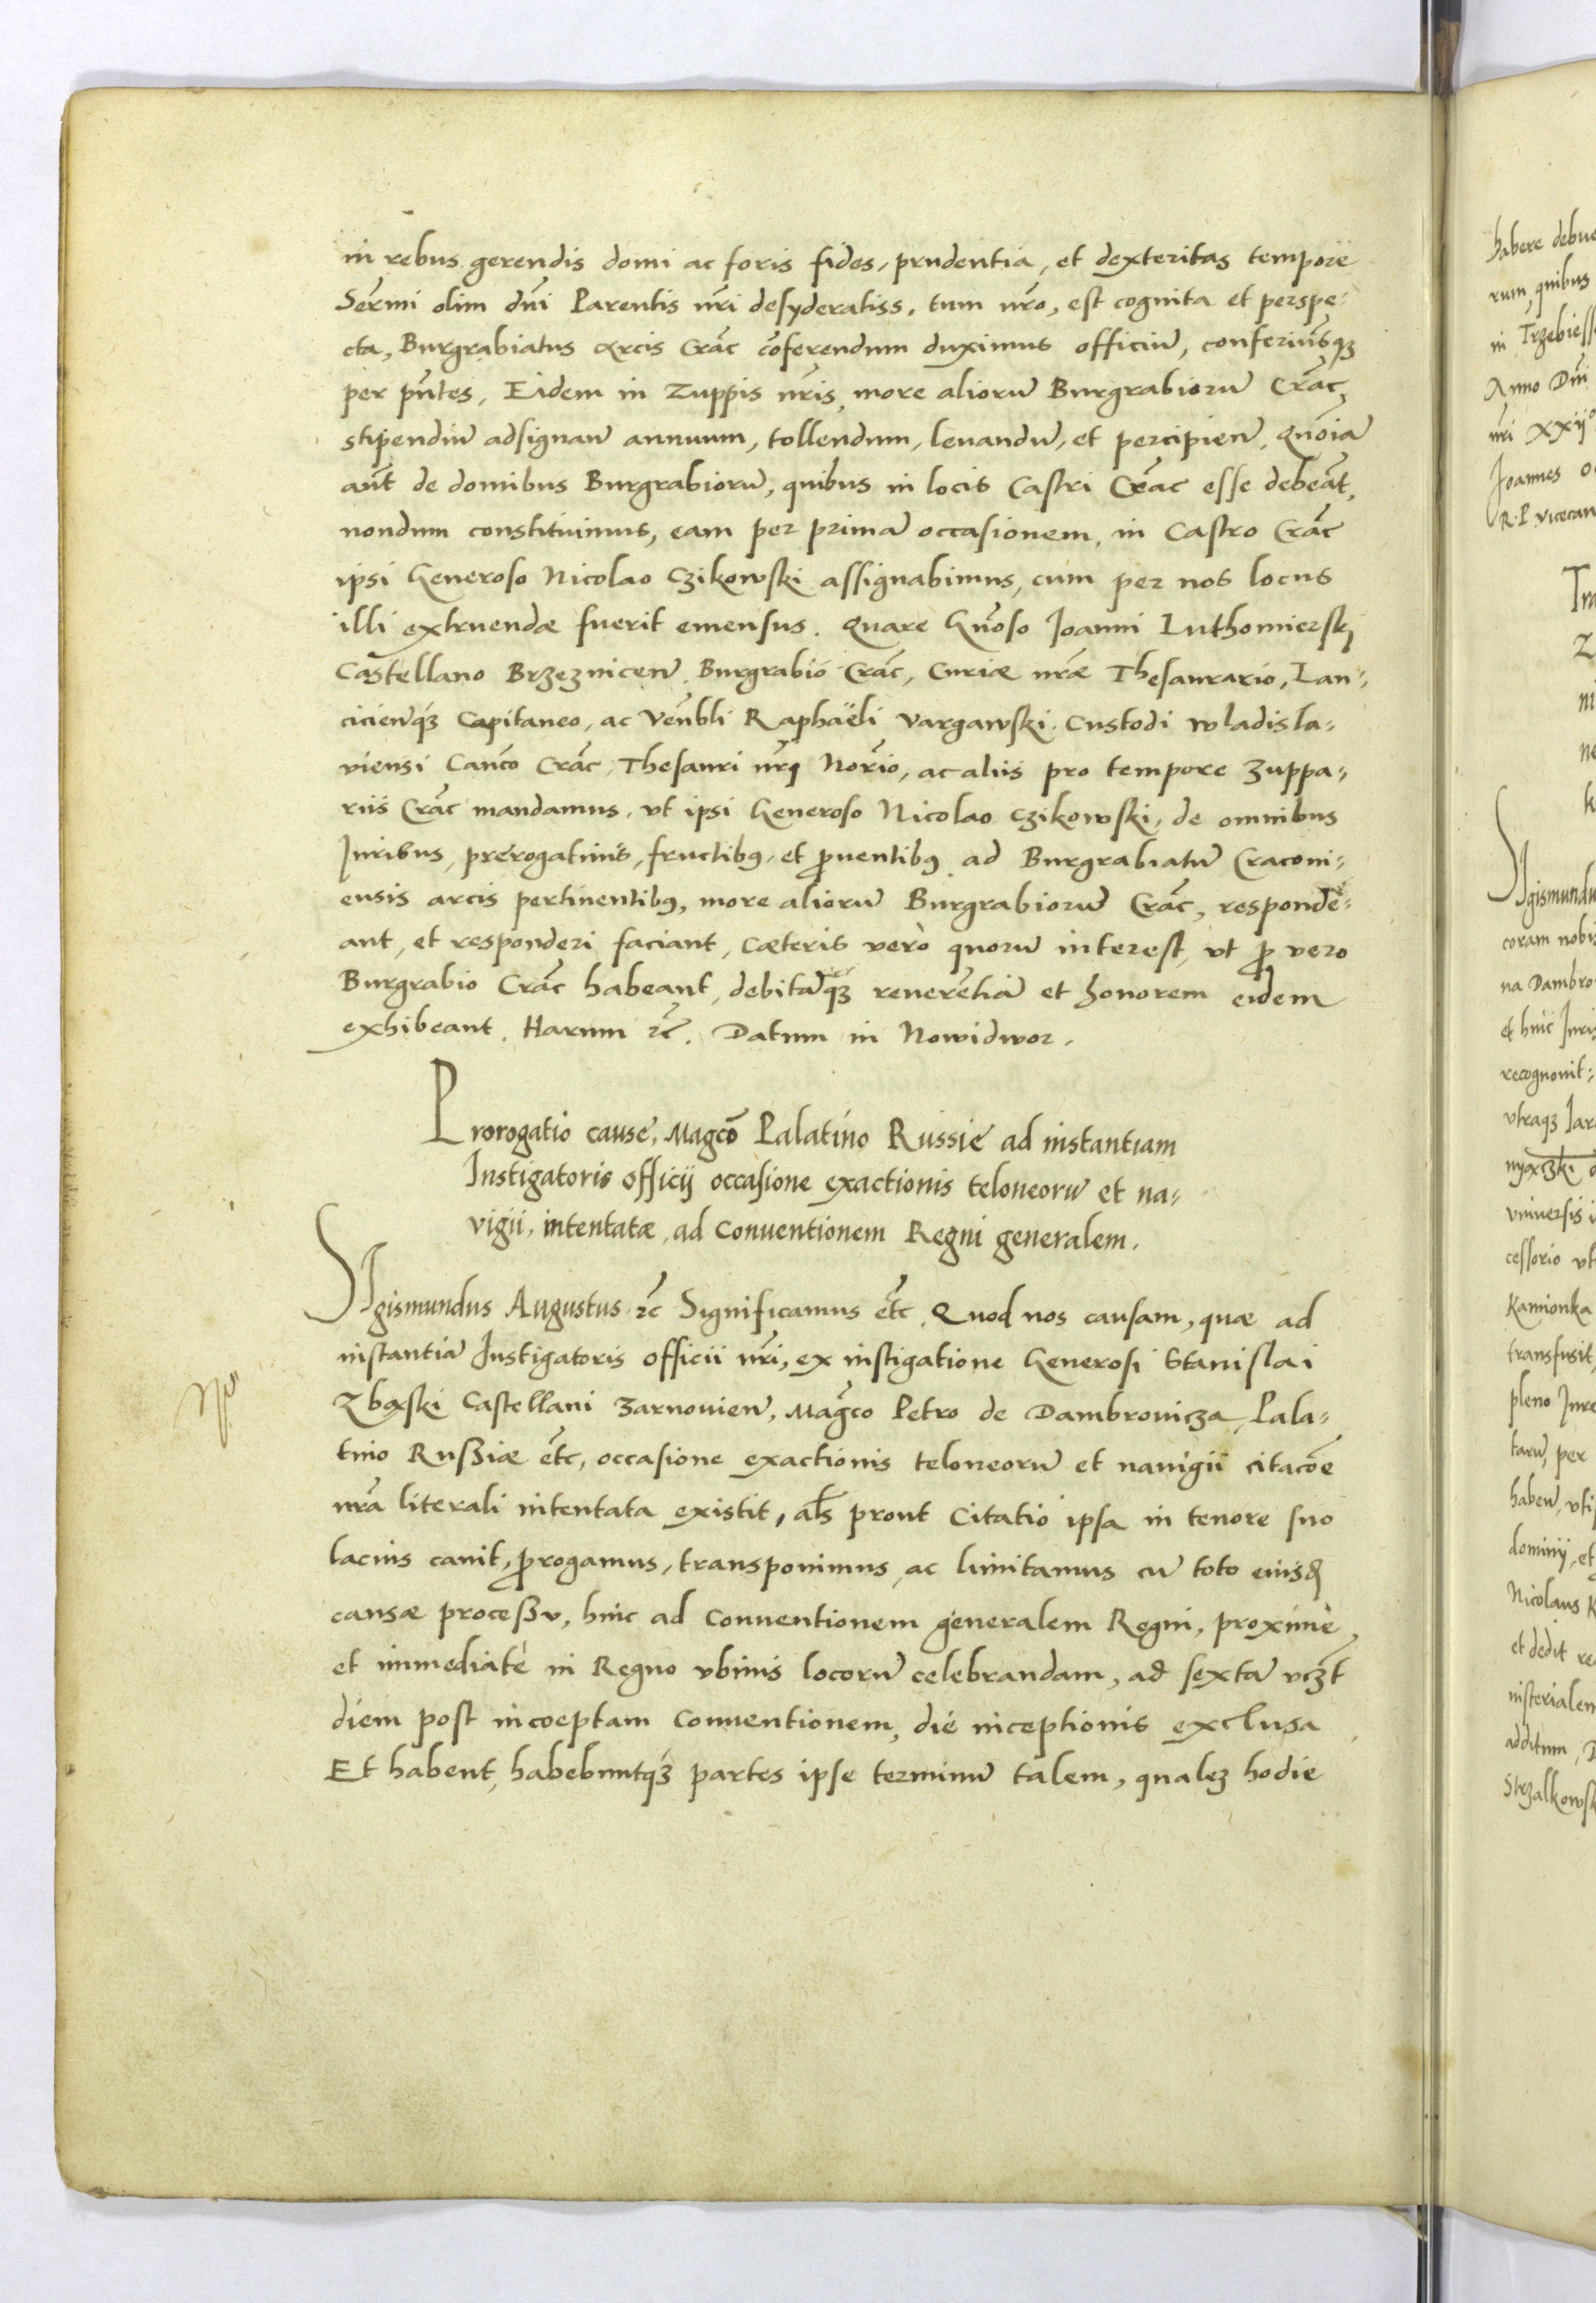 in rebus gerendis domi ac foris fides, prudentia, et dexteritas tempore
Sermi olim dni Parentis nri desyderatiss. tum nro, est cognita et perspe-
cta, Burgrabiatus Arcis Crac coferendum duximus officiu, conferimusq3
per pntes, Eidem in Zuppis nris, more alioru Burgrabioru Crac,
stipendiu adsignan annuum, tollendum, leuandu, et percipien. Quonia
aut de domibus Burgrabioru, quibus in locis Castri Crac esse debeat,
nondum constituimus, eam per prima occasionem, in Castro Crac
ipsi Generoso Nicolao Czikowski assignabimus, cum per nos locus
illi extruendæ fuerit emensus. Quare Gnoso Joanni Luthomierski
Castellano Brzeznicen, Burgrabio Crac, Curiæ nræ Thesaurario, Lan-
cicienq3 Capitaneo, ac Venbli Raphaëli Vargawski Custodi Wladisla-
viensi Canco Crac, Thesauri nri Norio, ac aliis pro tempore Zuppa-
riis Crac mandamus, vt ipsi Generoso Nicolao Czikowski, de omnibus
Juribus, prerogatiuis, fructibq, et prouentibq ad Burgrabiatu Craconi-
ensis arcis pertinentibq, more alioru Burgrabioru Crac, responde-
ant, et responderi faciant, Cæteris verò quoru interest, vt p vero
Burgrabio Crac habeant, debitaq3 reuerentia et honorem eidem
exhibeant. Harum etc. Datum in Nowidwor.
Prorogatio cause, Magco Palatino Russie ad instantiam
Instigatoris officij occasione exactionis teloneoru et na-
vigii, intentatæ, ad Conuentionem Regni generalem.
Sigismundus Augustus etc Significamus etc. Quod nos causam, quæ ad
instantia Instigatoris officii nri, ex instigatione Generosi Stanislai
Zbąski Castellani Zarnouien, Magco Petro de Dambrowicza, Pala-
tino Russiæ etc, occasione exactionis teloneoru et nauigii citacoe
nra literali intentata existit, als prout Citatio ipsa in tenore suo
lacius canit, progamus, transponimus, ac limitamus cu toto eiusd
causæ processu, hinc ad Conuentionem generalem Regni, proximè
et immediatè in Regno vbiuis locoru celebrandam, ad sexta vczt
diem post incoeptam Conuentionem, die inceptionis exclusa
Et habent, habebuntq3 partes ipse terminu talem, quale3 hodie
habere debue
rum, quibus
in Trzebiess
Anno Dni
nri XXijº
Joannes
R.P. vicecan
Tra
Sigismundu
coram nobis
na Dambro
et huic Juris
recognouit:
vtraq3 Jar
vniuersis
cessorio
Kamionka
transfusit,
pleno Jure
taru, per
haben,
dominij, et
Nicolaus
et dedit re
nisterialem
additum,
Strzalkowsk